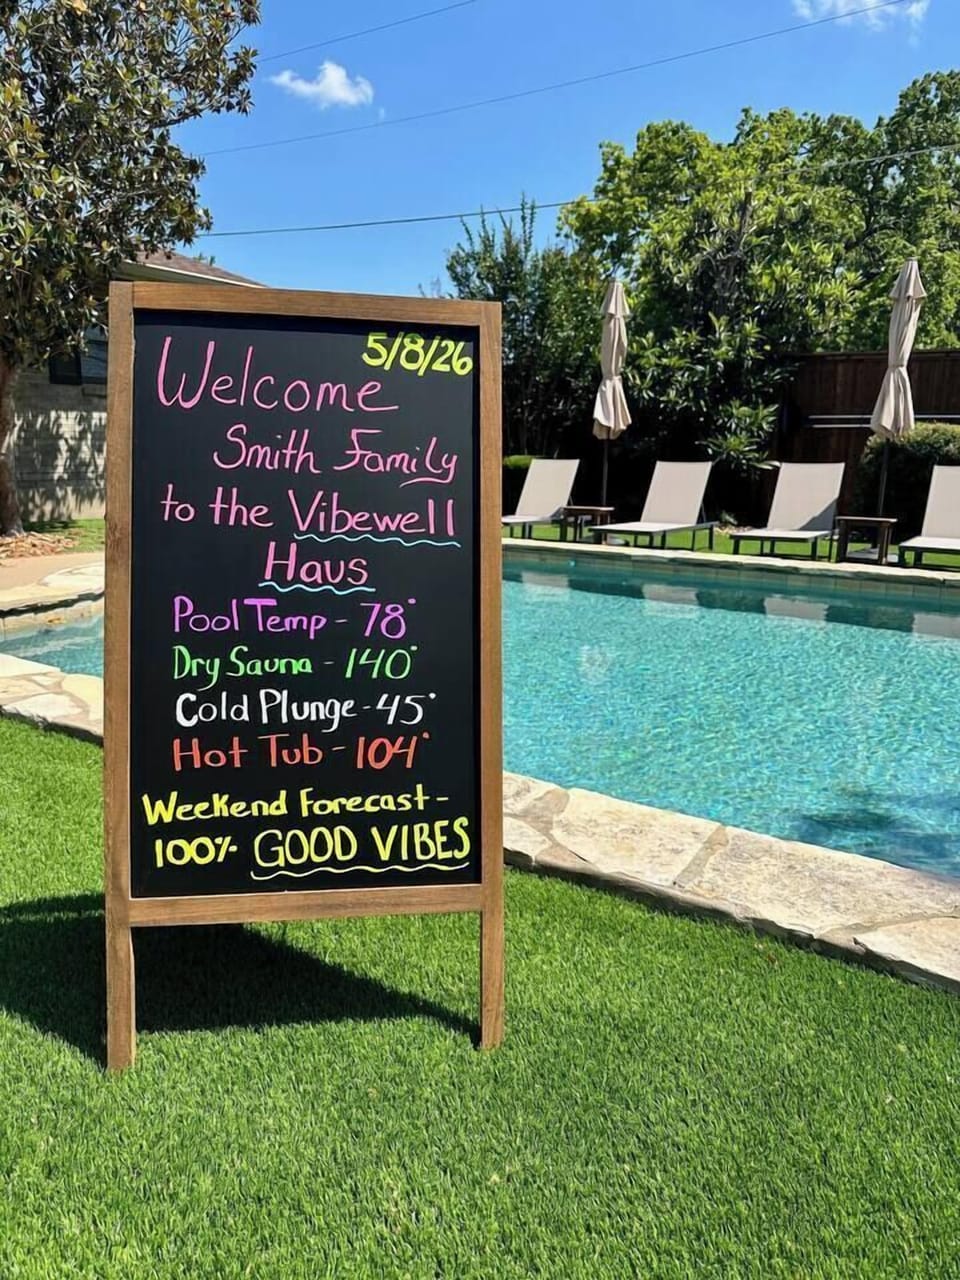 5/8/26
Welcome
Smith Family
to the Vibewell
Haus
Pool Temp - 78°
Dry Sauna - 140°
Cold Plunge - 45°
Hot Tub - 104°
Weekend Forecast -
100% GOOD VIBES